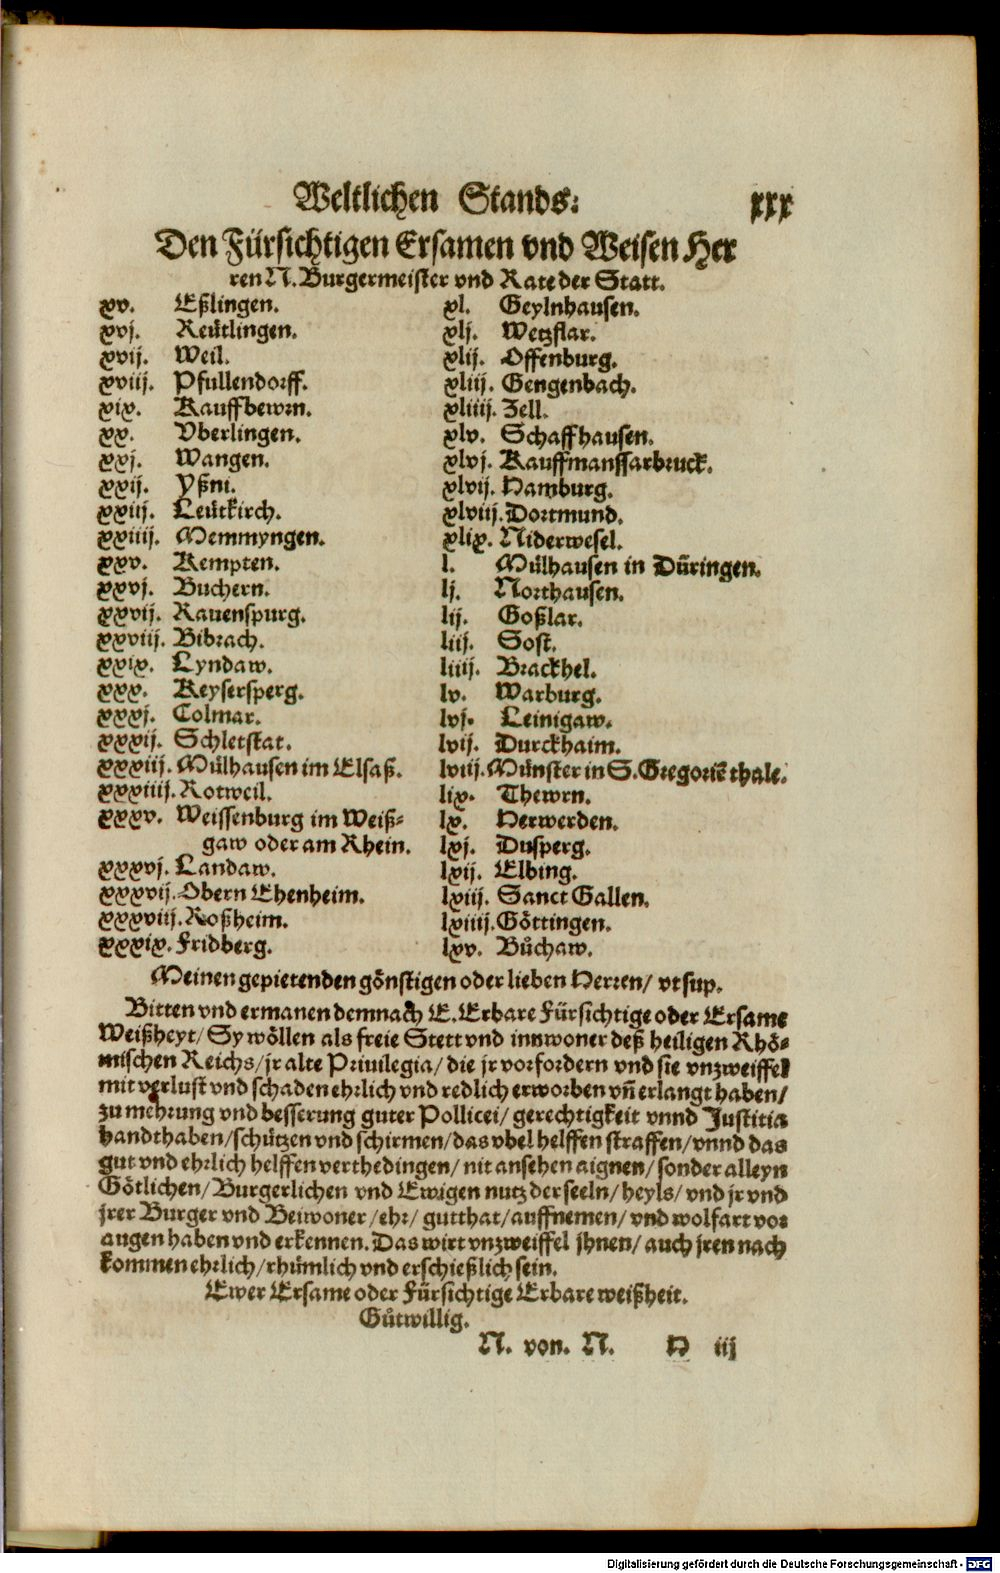 Weltlichen Stands: xxx
Den Fürsichtigen Ersamen vnd Weisen Her
ren N. Burgermeister vnd Rate der Statt.
xv. Eßlingen.
xvj. Reütlingen.
xvij. Weil.
xviij. Pfullendorff.
xix. Kauffbewrn.
xx. Vberlingen.
xxj. Wangen.
xxij. Yßni.
xxiij. Leütkirch.
xxiiij. Memmyngen.
xxv. Kempten.
xxvj. Buchern.
xxvij. Rauenspurg.
xxviij. Bibrach.
xxix. Lyndaw.
xxx. Keysersperg.
xxxj. Colmar.
xxxij. Schletstat.
xxxiij. Mülhausen im Elsaß.
xxxiiij. Rotweil.
xxxv. Weissenburg im Weiß-
gaw oder am Rhein.
xxxvj. Landaw.
xxxvij. Obern Ehenheim.
xxxviij. Roßheim.
xxxix. Fridberg.
xl. Geylnhausen.
xlj. Wetzflar.
xlij. Offenburg.
xliij. Gengenbach.
xliiij. Zell.
xlv. Schaffhausen.
xlvj. Kauffmanssarbruck.
xlvij. Hamburg.
xlviij. Dortmund.
xlix. Niderwesel.
l. Mülhausen in Düringen.
lj. Northausen.
lij. Goßlar.
liij. Sost.
liiij. Brackhel.
lv. Warburg.
lvj. Leinigaw.
lvij. Durckhaim.
lviij. Münster in S. Gregoriē thale.
lix. Thewrn.
lx. Herwerden.
lxj. Dusperg.
lxij. Elbing.
lxiij. Sanct Gallen.
lxiiij. Göttingen.
lxv. Bůchaw.
Meinen gepietenden gönstigen oder lieben Herren/ vt sup.
Bitten vnd ermanen demnach E. Erbare Fürsichtige oder Ersame
Weißheyt/ Sy wöllen als freie Stett vnd innwoner deß heiligen Rhö-
mischen Reichs/ jr alte Priuilegia/ die jr vorfordern vnd sie vnzweiffel
mit verlust vnd schaden ehrlich vnd redlich erworben vn̄ erlangt haben/
zu mehrung vnd besserung guter Pollicei/ gerechtigkeit vnnd Justitia
handthaben/ schützen vnd schirmen/ das vbel helffen straffen/ vnnd das
gut vnd ehrlich helffen verthedingen/ nit ansehen aignen/ sonder alleyn
Götlichen/ Burgerlichen vnd Ewigen nutz der seeln/ heyls/ vnd jr vnd
jrer Burger vnd Beiwoner/ ehr/ gutthat/ auffnemen/ vnd wolfart vor
augen haben vnd erkennen. Das wirt vnzweiffel jhnen/ auch jren nach
kommen ehrlich/ rhümlich vnd erschießlich sein.
Ewer Ersame oder Fürsichtige Erbare weißheit.
Gůtwillig.
N. von. N. H iij
Digitalisierung gefördert durch die Deutsche Forschungsgemeinschaft - DFG